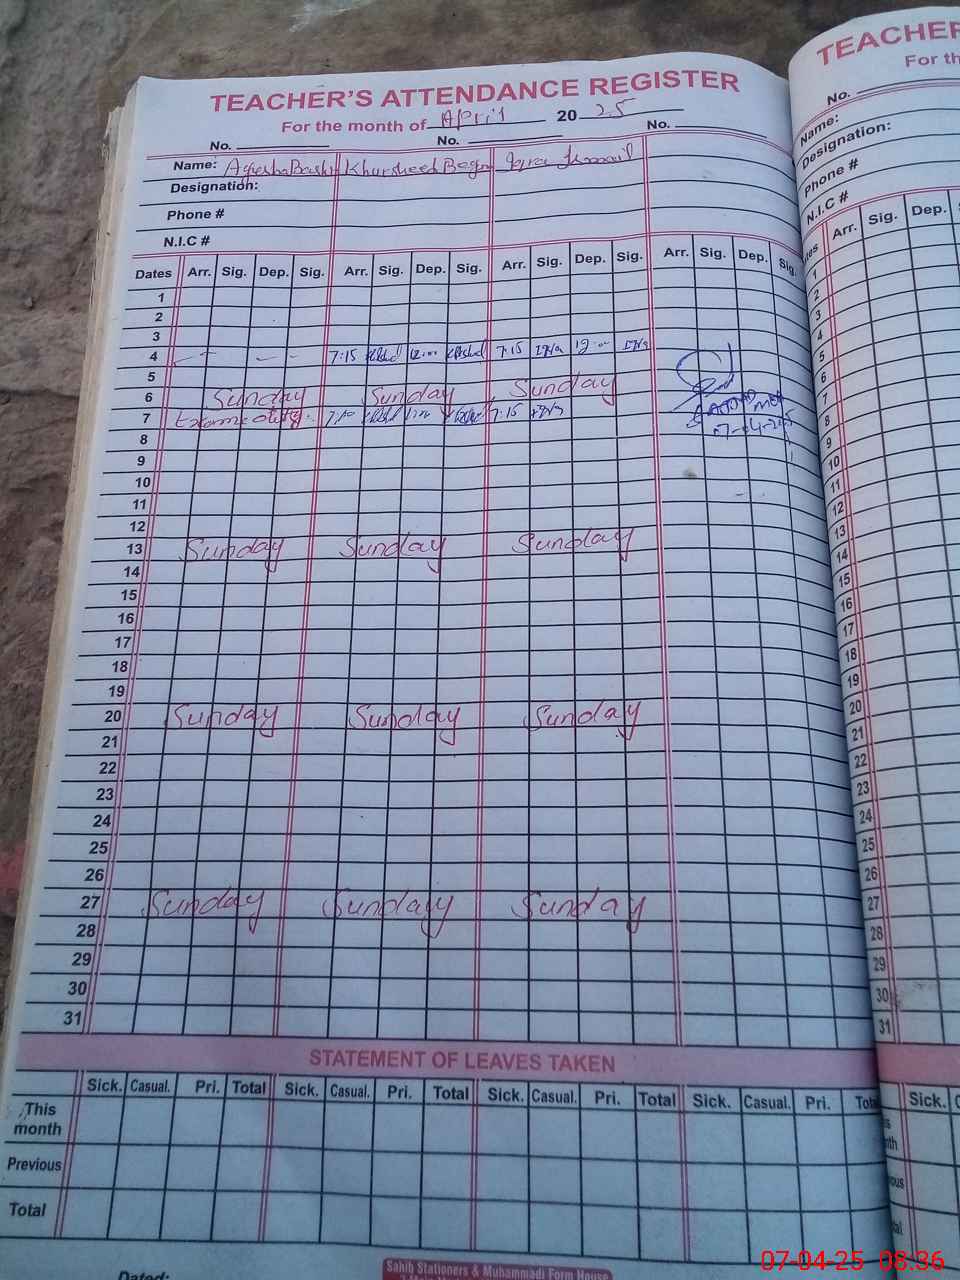 TEACHER'S ATTENDANCE REGISTER
For the month of April 20 25
No. No. No.
Name: Khursheed Begum
Designation:
Phone #
N.I.C #
Dates Arr. Sig. Dep. Sig. Arr. Sig. Dep. Sig. Arr. Sig. Dep. Sig. Arr. Sig. Dep. Sig.
1
2
3
4 7:15 7:15
5
6 Sunday Sunday Sunday
7 7:15
07-04-2025
8
9
10
11
12
13 Sunday Sunday Sunday
14
15
16
17
18
19
20 Sunday Sunday Sunday
21
22
23
24
25
26
27 Sunday Sunday Sunday
28
29
30
31
STATEMENT OF LEAVES TAKEN
Sick. Casual. Pri. Total Sick. Casual. Pri. Total Sick. Casual. Pri. Total Sick. Casual. Pri. Total
This month
Previous
Total
Dated:
Sahib Stationers & Muhammadi Form House
TEACHER
For th
No.
Name:
Designation:
Phone #
N.I.C #
Arr. Sig. Dep.
1
2
3
4
5
6
7
8
9
10
11
12
13
14
15
16
17
18
19
20
21
22
23
24
25
26
27
28
29
30
31
Sick.
07-04-25 08:36